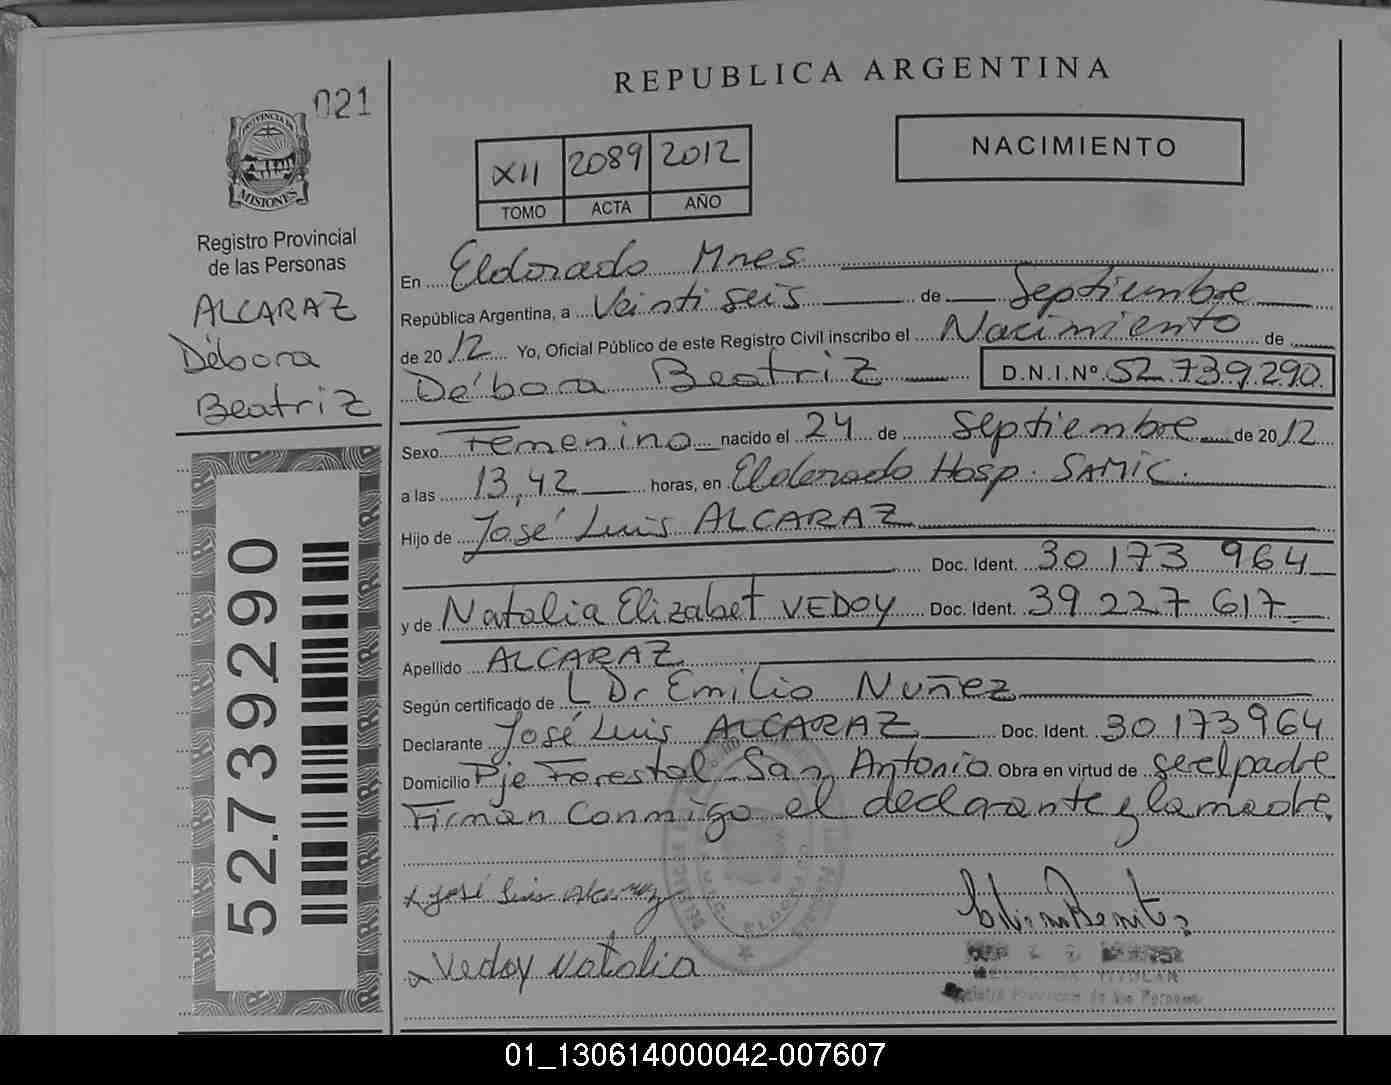 REPUBLICA ARGENTINA
021
PROVINCIA DE
MISIONES
Registro Provincial
de las Personas
ALCARAZ
Débora
Beatriz
52.739.290
XII 2089 2012
TOMO ACTA AÑO
NACIMIENTO
En Eldorado Mnes
República Argentina, a Veinti seis de Septiembre
de 2012 Yo, Oficial Público de este Registro Civil inscribo el Nacimiento de
Débora Beatriz D.N.I.Nº 52.739.290
Sexo Femenino nacido el 24 de Septiembre de 2012
a las 13,42 horas, en Eldorado Hosp. SAMIC.
Hijo de José Luis ALCARAZ
Doc. Ident. 30 173 964
y de Natalia Elizabet VEDOY Doc. Ident. 39 227 617
Apellido ALCARAZ
Según certificado de Dr Emilio Nuñez
Declarante José Luis ALCARAZ Doc. Ident. 30 173 964
Domicilio Pje Forestal San Antonio Obra en virtud de ser el padre
Firman conmigo el declarante y la madre.
x José Luis Alcaraz
x Vedoy Natalia
TITULAR
Registro Provincial de las Personas
01_130614000042-007607